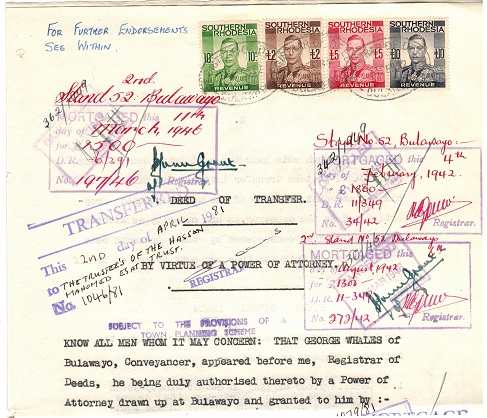 FOR FURTHER ENDORSEMENTS
SEE WITHIN.
SOUTHERN RHODESIA
10/- 10/-
REVENUE
SOUTHERN RHODESIA
£2 £2
REVENUE
SOUTHERN RHODESIA
£5 £5
REVENUE
SOUTHERN RHODESIA
£10 £10
REVENUE
2nd.
Stand 52 Bulawayo
MORTGAGED 11th
day of March, 1946
for £ 1300
D. R. 6/291
No. 197/46 Registrar.
Stand No. 52, Bulawayo:-
MORTGAGED 4th
day of February, 1942.
for £ 1300
D. R. 11/349
No. 34/42
Registrar.
DEED OF TRANSFER.
TRANSFERRED
This 22ND day of APRIL 1981
TO THE TRUSTEES OF THE HASSON
MAHOMED ESAT TRUST.
No. 1046/81
REGISTRAR
2nd Stand No. 52 Bulawayo
MORTGAGED
day of August 1942
for £ 1300
D. R. 11-349
No. 272/42 Registrar.
BY VIRTUE OF A POWER OF ATTORNEY.
SUBJECT TO THE PROVISIONS OF A
TOWN PLANNING SCHEME
KNOW ALL MEN WHOM IT MAY CONCERN: THAT GEORGE WHALES of
Bulawayo, Conveyancer, appeared before me, Registrar of
Deeds, he being duly authorised thereto by a Power of
Attorney drawn up at Bulawayo and granted to him by :-